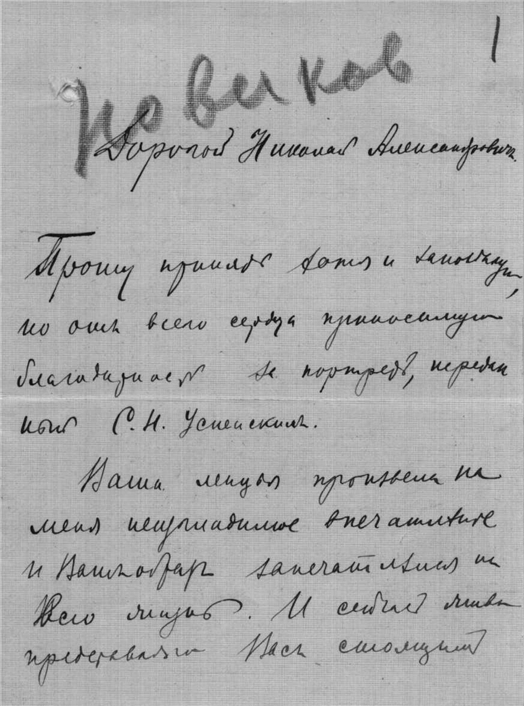 1
Новиков
Дорогой Николай Александрович.
Прошу принять хотя и запоздалую,
но отъ всего сердца приносимую
благодарность за портретъ, передан
ный С. Н. Успенскимъ.
Ваша лекция произвела на
меня неизгладимое впечатлѣние
и Вашъ образъ запечатлѣлся на
всю жизнь. И сейчасъ живо
представляю Васъ стоящимъ